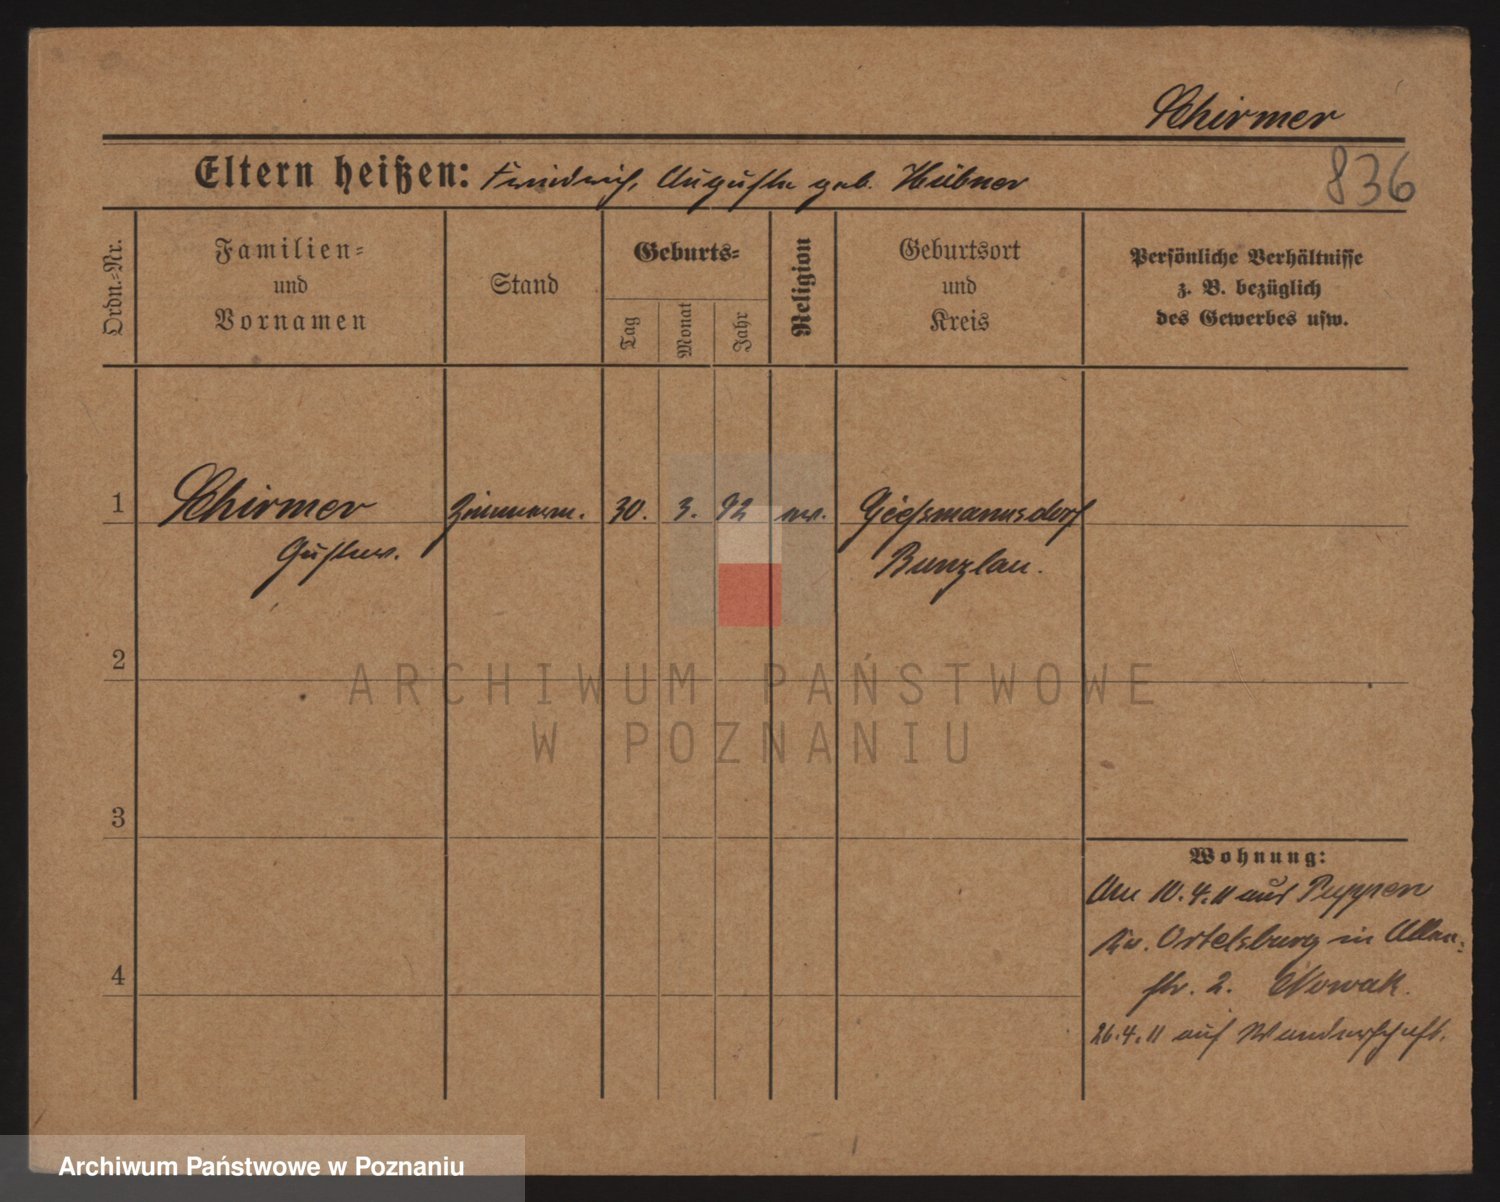 Schirmer
Eltern heißen: Friedrich, Auguste geb. Hübner
836
Ordn.-Nr.
Familien-
und
Vornamen
Stand
Geburts-
Tag
Monat
Jahr
Religion
Geburtsort
und
Kreis
Persönliche Verhältnisse
z. B. bezüglich
des Gewerbes usw.
1 Schirmer Zimmerm. 30. 3. 92 ev. Giessmannsdorf
Gustav. Bunzlau.
2
3
4
Wohnung:
Am 10.4.11 aus Puppen
Kr. Ortelsburg in
str. 2. Nowak.
26.4.11 auf Wanderschaft.
ARCHIWUM PAŃSTWOWE
W POZNANIU
Archiwum Państwowe w Poznaniu